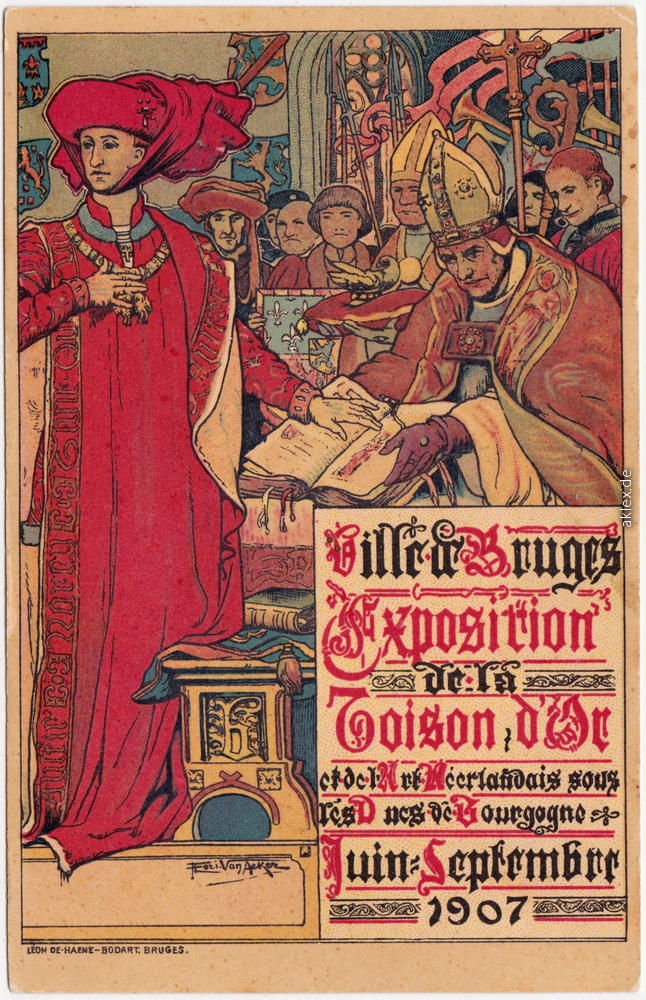 Ville de Bruges
Exposition
de la
Toison d'Or
et de l'Art Néerlandais sous
les Ducs de Bourgogne
Juin-Septembre
1907
Flori Van Acker
LÉON DE-HAENE-BODART. BRUGES.
aklex.de